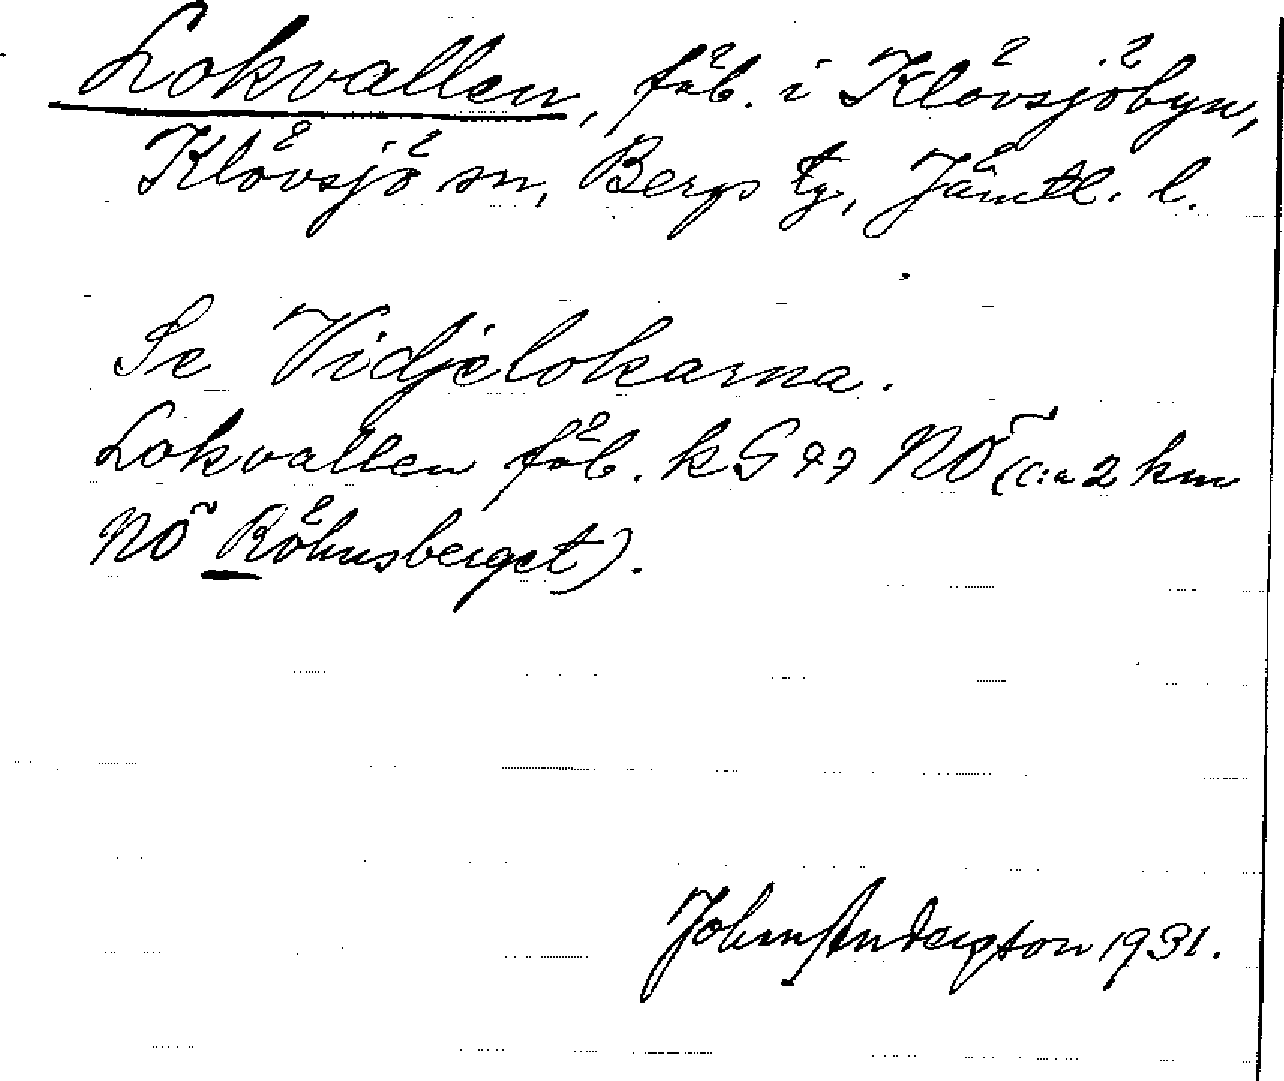 Lokvallen, fäb. i Klövsjöbyn,
Klövsjö sn, Bergs tg, Jämtl. l.
Se Vidjelokarna.
Lokvallen fäb. kS 77 NÖ (c:a 2 km
NÖ Röhnsberget).
John Andersson 1931.